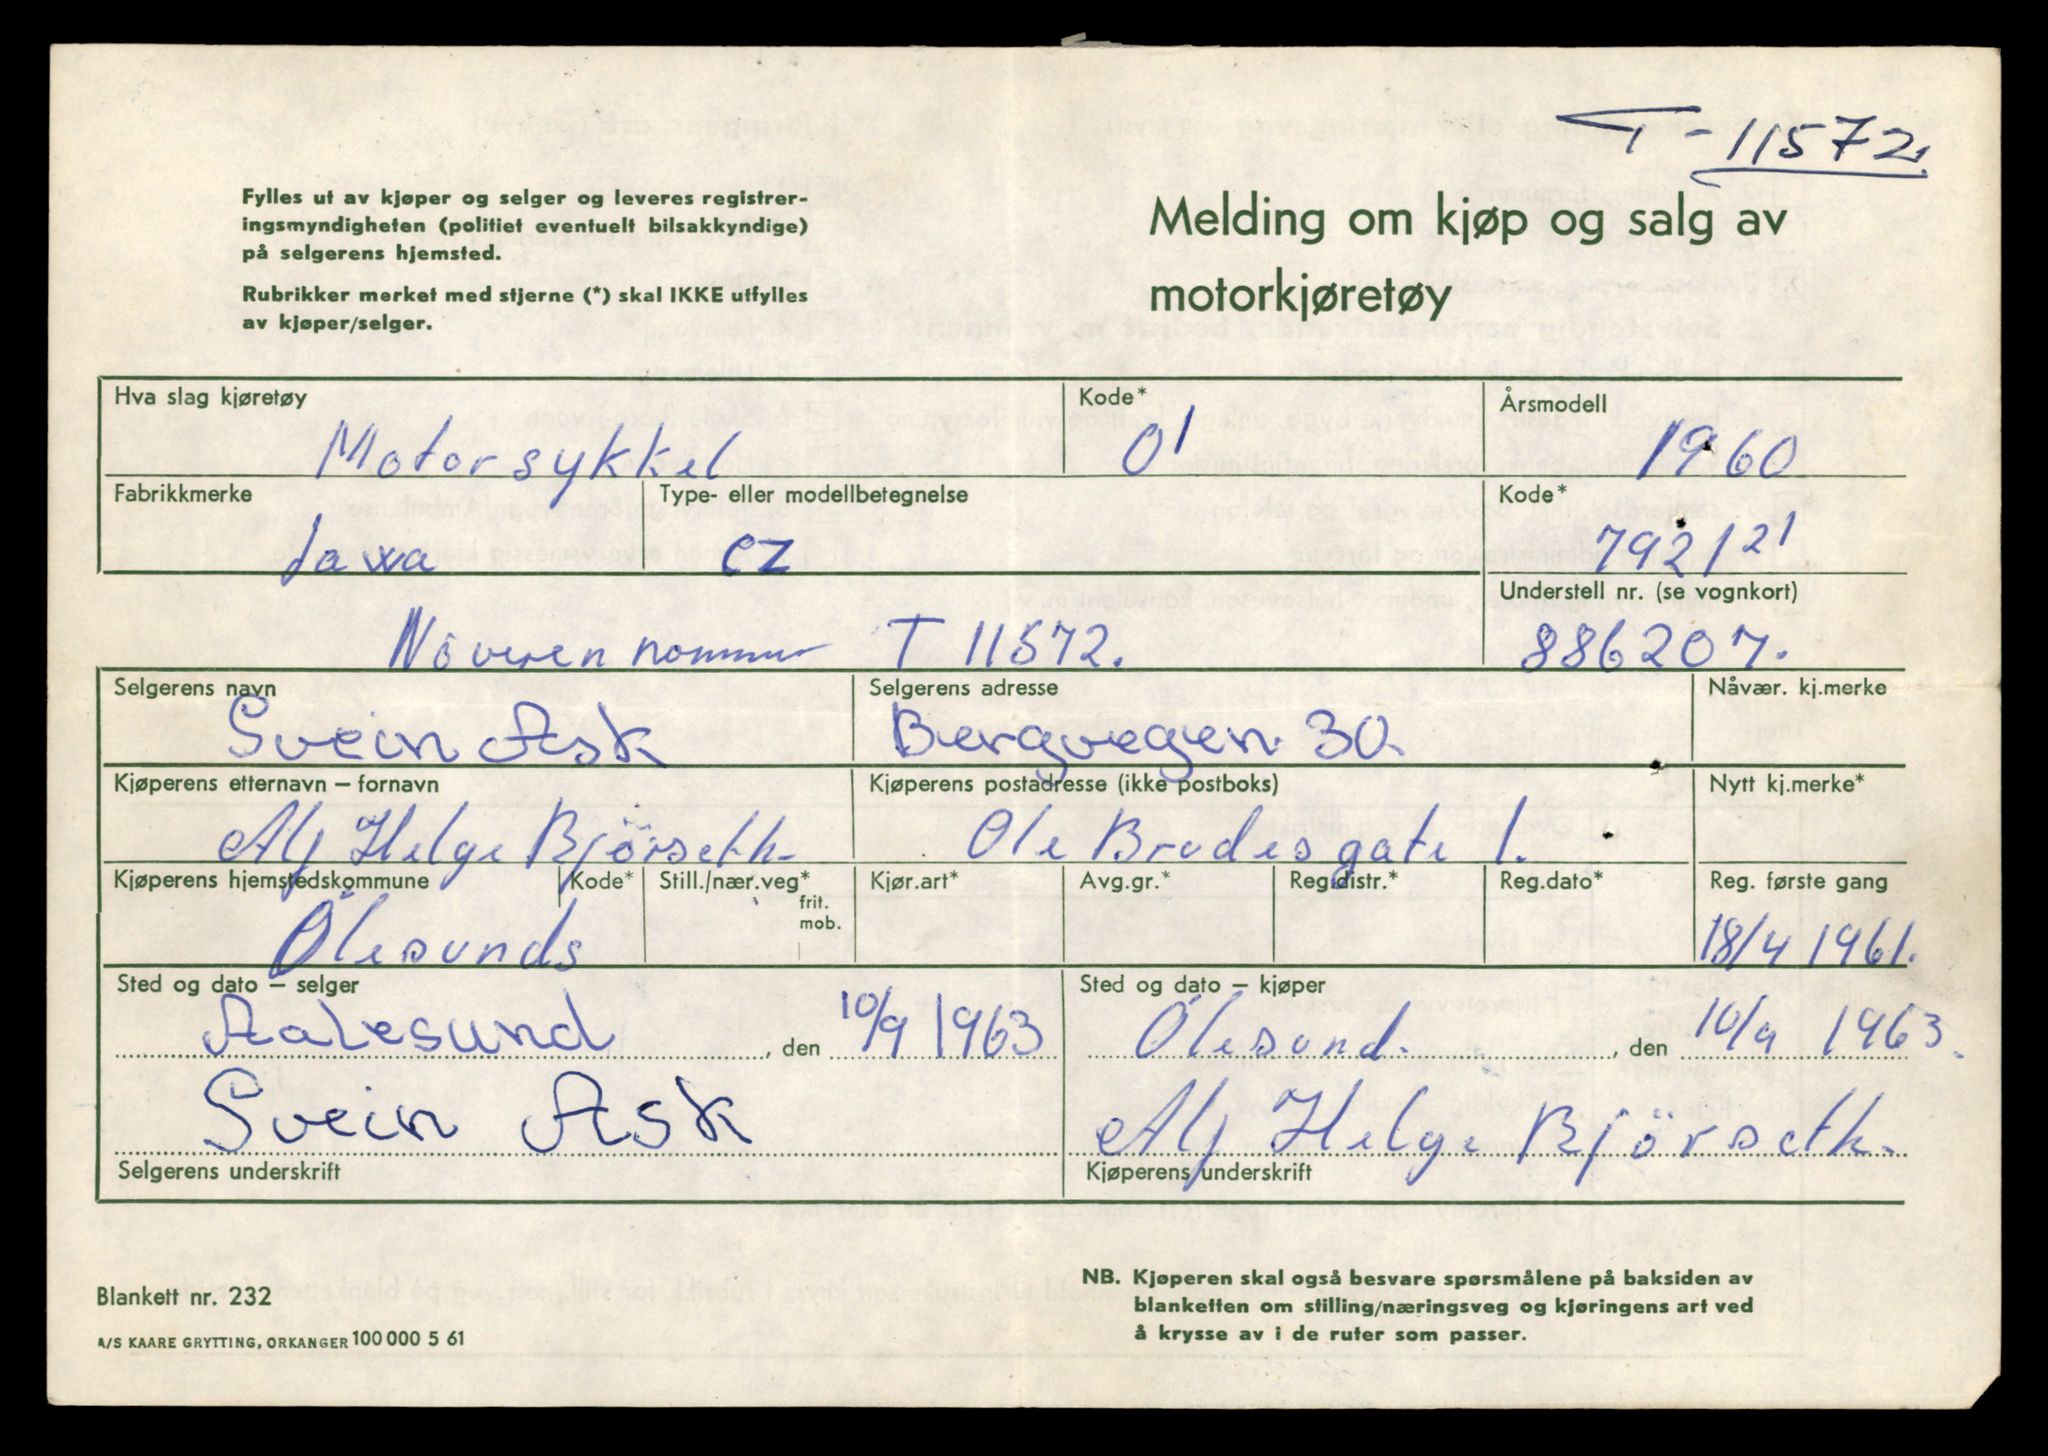 T-11572.
Fylles ut av kjøper og selger og leveres registrer-
ingsmyndigheten (politiet eventuelt bilsakkyndige)
på selgerens hjemsted.
Rubrikker merket med stjerne (*) skal IKKE utfylles
av kjøper/selger.
Melding om kjøp og salg av
motorkjøretøy
Hva slag kjøretøy
Motorsykkel
Kode*
01
Årsmodell
1960
Fabrikkmerke
Jawa
Type- eller modellbetegnelse
CZ
Kode*
792121
Understell nr. (se vognkort)
886207.
T 11572.
Selgerens navn
Svein Ask
Selgerens adresse
Bergvegen 30.
Nåvær. kj.merke
Kjøperens etternavn – fornavn
Alf Helge Björseth.
Kjøperens postadresse (ikke postboks)
Ole Brodesgate 1.
Nytt kj.merke*
Kjøperens hjemstedskommune
Ölesunds
Kode*
Still./nær.veg*
frit.
mob.
Kjør.art*
Avg.gr.*
Reg.distr.*
Reg.dato*
Reg. første gang
18/4 1961.
Sted og dato – selger
Aalesund, den 10/9 1963
Sted og dato – kjøper
Ölesund., den 10/9 1963.
Svein Ask
Selgerens underskrift
Alf Helge Björseth.
Kjøperens underskrift
Blankett nr. 232
A/S KAARE GRYTTING, ORKANGER 100 000 5 61
NB. Kjøperen skal også besvare spørsmålene på baksiden av
blanketten om stilling/næringsveg og kjøringens art ved
å krysse av i de ruter som passer.